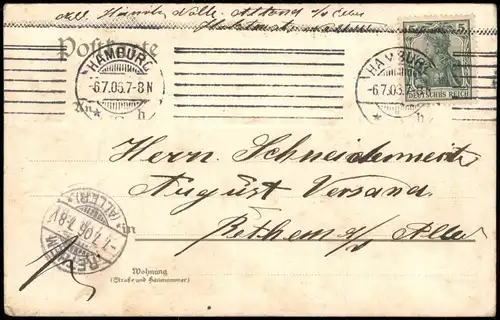 Postkarte
HAMBURG
-6.7.05.7-8N
* h *
HAMBURG
-6.7.05.7-8N
* h *
DEUTSCHES REICH
An
Herrn Schneidermeister
August Versand
in Rethem a/d Aller
(ALLER)
RETHEM
Wohnung
(Straße und Hausnummer)